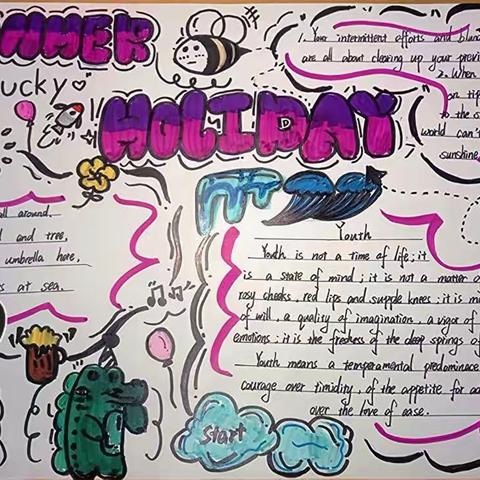 MMER
ucky
HOLIDAY
1. Your intermittent efforts and
are all about clearing up your
2. When
on
to the
world can't
sunshine
all around,
and tree,
umbrella here,
at sea.
Youth
Youth is not a time of life; it
is a state of mind; it is not a matter
rosy cheeks, red lips and supple knees; it is
of will, a quality of imagination, a vigor of
emotions; it is the freshness of the deep springs of
Youth means a temperamental predominance
courage over timidity, of the appetite for
over the love of ease.
Start